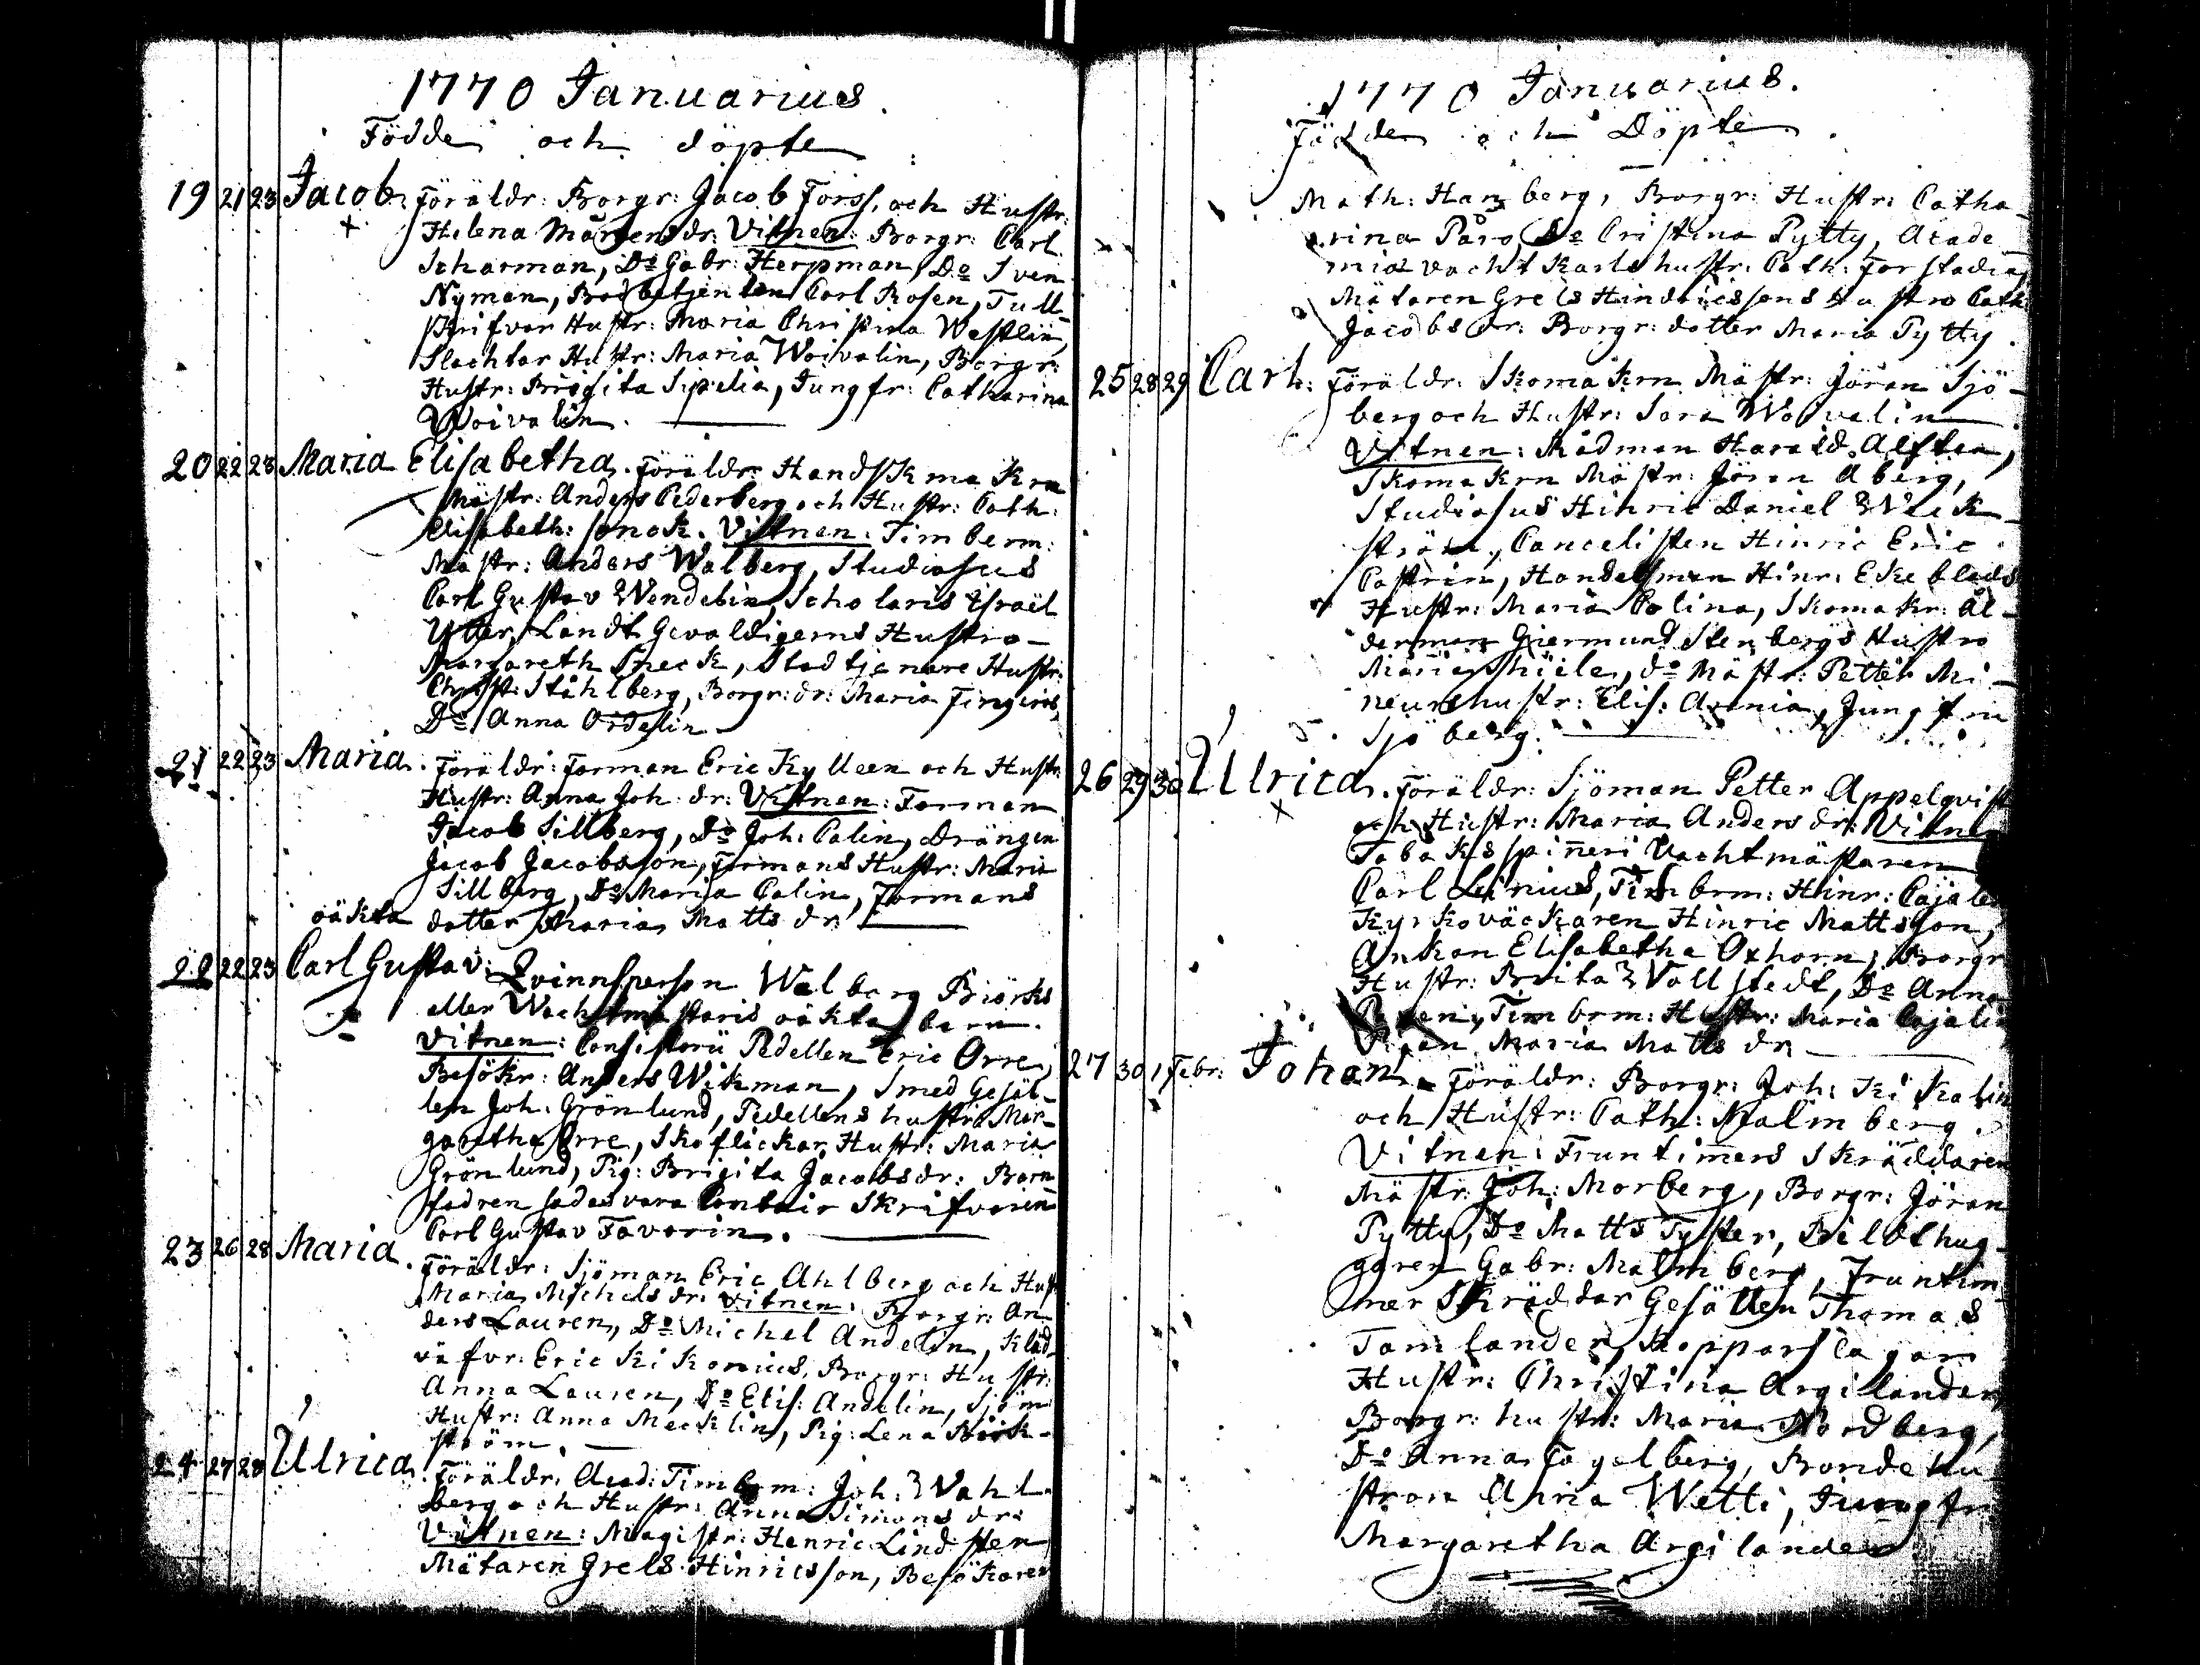 1770 Januarius.
Födde och döpte
19 21 23 Jacob. Föräldr: Borgr: Jacob Forss, och Hustr:
Helena Mårtensdr: Vitnen: Borgr: Carl
Scharman, Do Gabr: Herpman, Do Sven
Nyman, Carl Rosen, Tull-
skrifvar Hustr: Maria Christina Westlin,
Slachtar Hustr: Maria Woivalin, Borgr:
Hustr: Brigita Sipelia, Jungfr: Catharina
Woivalin.
20 22 23 Maria Elisabetha. Föräldr: Handskmakrn
Mästr: Anders Cederberg och Hustr: Cath:
Elisabeth: Vitnen: Timberm:
Mästr: Anders Walberg, Studiosus
Carl Gustav Wendelin, Scholaris Israël
Landt Gevaldigerns Hustro
Margareth Sneck, Stadtjenare Hustr:
Christ: Ståhlberg, Borgr: dr: Maria
Do Anna Ordelin
21 22 23 Maria. Föräldr: Forman Eric Kylleen och Hustr
Hustr: Anna Joh: dr: Vitnen: Forman
Jacob Sillberg, Do Joh: Calin, Drängen
Jacob Jacobsson, Formans Hustr: Maria
Sillberg, Do Maria Calin, Formans
oäkta dotter Maria Matts dr
22 22 23 Carl Gustav: Qvinnsperson Walborg Biörks
eller Wachtmästaris oäkta barn.
Vitnen: Consistorii Pedellen Eric Orre,
Besökr: Anders Wikman, Smed Gesäl-
len Joh: Grönlund, Pedellens hustr: Mar-
garetha Orre, Skoflickar Hustr: Maria
Grönlund, Pig: Brigita Jacobsdr: Barn
fadren sades vara Contoir Skrifvaren
Carl Gustav Favorin.
23 26 28 Maria. Föräldr: Sjöman Eric Ahlberg och Hust
Maria Michelsdr: Vitnen: Borgr: An
ders Lauren, Do Michel Andelin, Kläd
väfvr: Eric Kikonius, Borgr: Hustr:
Anna Lauren, Do Elis: Andelin, Sjöm
Hustr: Anna Mecklin, Pig: Lena Björk-
ström.
24 27 28 Ulrica. Föräldr: Acad: Timbrm: Joh: Wahl
berg och Hustr: Anna Simons dr:
Vitnen: Magistr: Henric Lindsten
Mätaren Grels Hinricsson, Besökaren
1770 Januarius.
Födde och Döpte
Math: Hamberg, Borgr: Hustr: Catha-
rina Påro, Do Cristina Pytty, Acade
miæ vacht Karls hustr: Cath: Forstadia,
Mätaren Grels Hindricssons Hustro Cath
Jacobs dr: Borgr: dotter Maria Pytty.
25 28 29 Carl: Föräldr: Skomakrn Mästr: Jöran Sjö-
berg och Hustr: Sara Woivalin
Vitnen: Rådman Harald Alftan,
Skomakrn Mästr: Jöran Åberg,
Studiosus Hinric Daniel Wick-
ström, Cancelisten Hinric Eric
Castrin, Handelsman Hinr: Ekeblads
Hustr: Maria Polina, Skomakr: Ål-
derman Giermund Stenbergs Hustro
Maria Thiele, do Mästr: Petter Mi-
neurs hustr: Elis: Jungfru
Sjöberg.
26 29 30 Ulrica. Föräldr: Sjöman Petter Appelqvist
och Hustr: Maria Anders dr: Vitne
Tobaksspinneri Vachtmästaren
Carl Linius, Timbrm: Hinr: Cajalen
Kyrkoväckaren Hinric Mattsson,
Änkan Elisabetha Oxhorn, Borgr
Hustr: Brita Wallstedt, Do Anna
Timbrm: Hustr: Maria Cajalin
Maria Matts dr
27 30 1 Febr: Johan. Föräldr: Borgr: Joh: Kikalin
och Hustr: Cath: Malmberg.
Vitnen: Fruntimers Skräddaren
Mästr: Joh: Morberg, Borgr: Jöran
Pytty, Do Matts Tyster, Bildthug-
garen Gabr: Malmberg, Fruntim
mer Skräddar Gesällen Thomas
Tamlander, Kopparslagare
Hustr: Christina Argilander,
Borgr: hustr: Maria Nordberg,
Do Anna Fogelberg, Bonde Hu
stron Anna Wetti, Jungfr
Margaretha Argilander